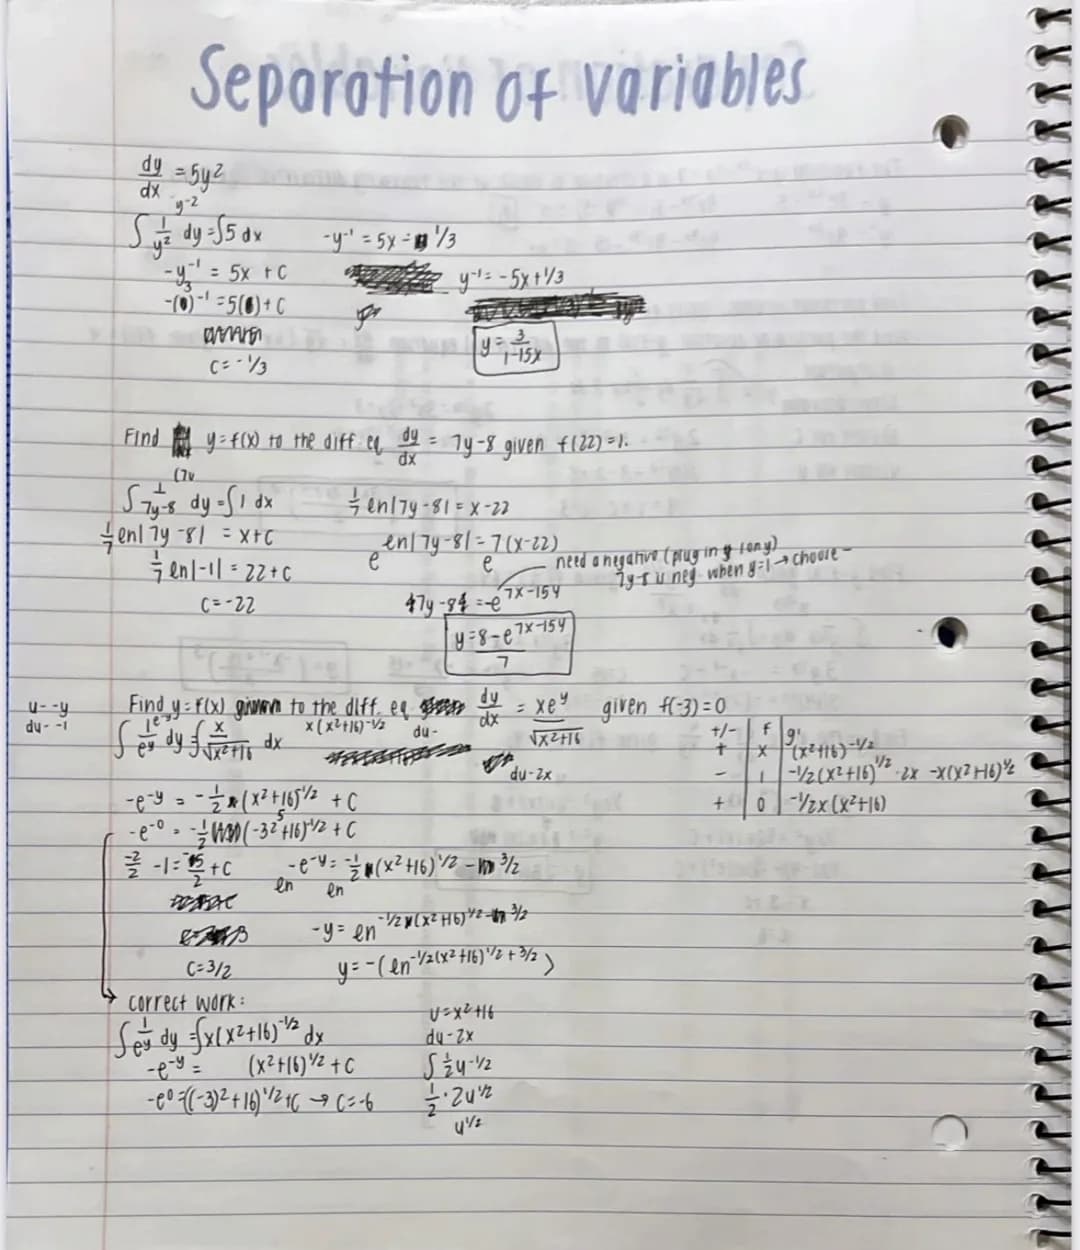 Separation of variables
dy/dx = 5y²
y⁻²
∫ 1/y² dy = ∫5 dx
-y⁻¹ = 5x + C
3
-( )⁻¹ = 5( ) + C
C = -1/3
-y⁻¹ = 5x - 1/3
y⁻¹ = -5x + 1/3
y = 3/1-15x
Find y = f(x) to the diff. eq dy/dx = 7y-8 given f(22) = 1.
∫ 1/7y-8 dy = ∫ 1 dx
1/7 en|7y-8| = x+C
1/7 en|-1| = 22+C
C = -22
1/7 en|7y-8| = x-22
e en|7y-8| = e 7(x-22)
need a negative (plug in y (any)
7y-8 is neg. when y=1 → choose -
7y-8 = -e^7x-154
y = 8-e^7x-154/7
u= -y
du= -1
Find y = f(x) given to the diff. eq dy/dx = xe^y/√x²+16 given f(-3) = 0
∫ 1/e^y dy = ∫ x/√x²+16 dx
e^-y
x(x²+16)^-1/2
du-
du-2x
+/- f g'
+ x (x²+16)^-1/2
- 1 -1/2(x²+16)^1/2 · 2x -x(x²+16)^1/2
+ 0 -1/2x(x²+16)
-e^-y = -1/2(x²+16)^1/2 + C
-e^-0 = -1/2(-3²+16)^1/2 + C
5
-2/2 -1 = -5/2 + C
C = 3/2
-e^-y = -1/2(x²+16)^1/2 - 3/2
en en
-y = en^-1/2(x²+16)^1/2 - 3/2
y = -(en^-1/2(x²+16)^1/2 + 3/2)
correct work:
∫ 1/e^y dy = ∫x(x²+16)^-1/2 dx
-e^-y = (x²+16)^1/2 + C
-e⁰ = ((-3)²+16)^1/2 + C → C = -6
u = x²+16
du - 2x
∫ 1/2 u^-1/2
1/2 · 2u^1/2
u^1/2